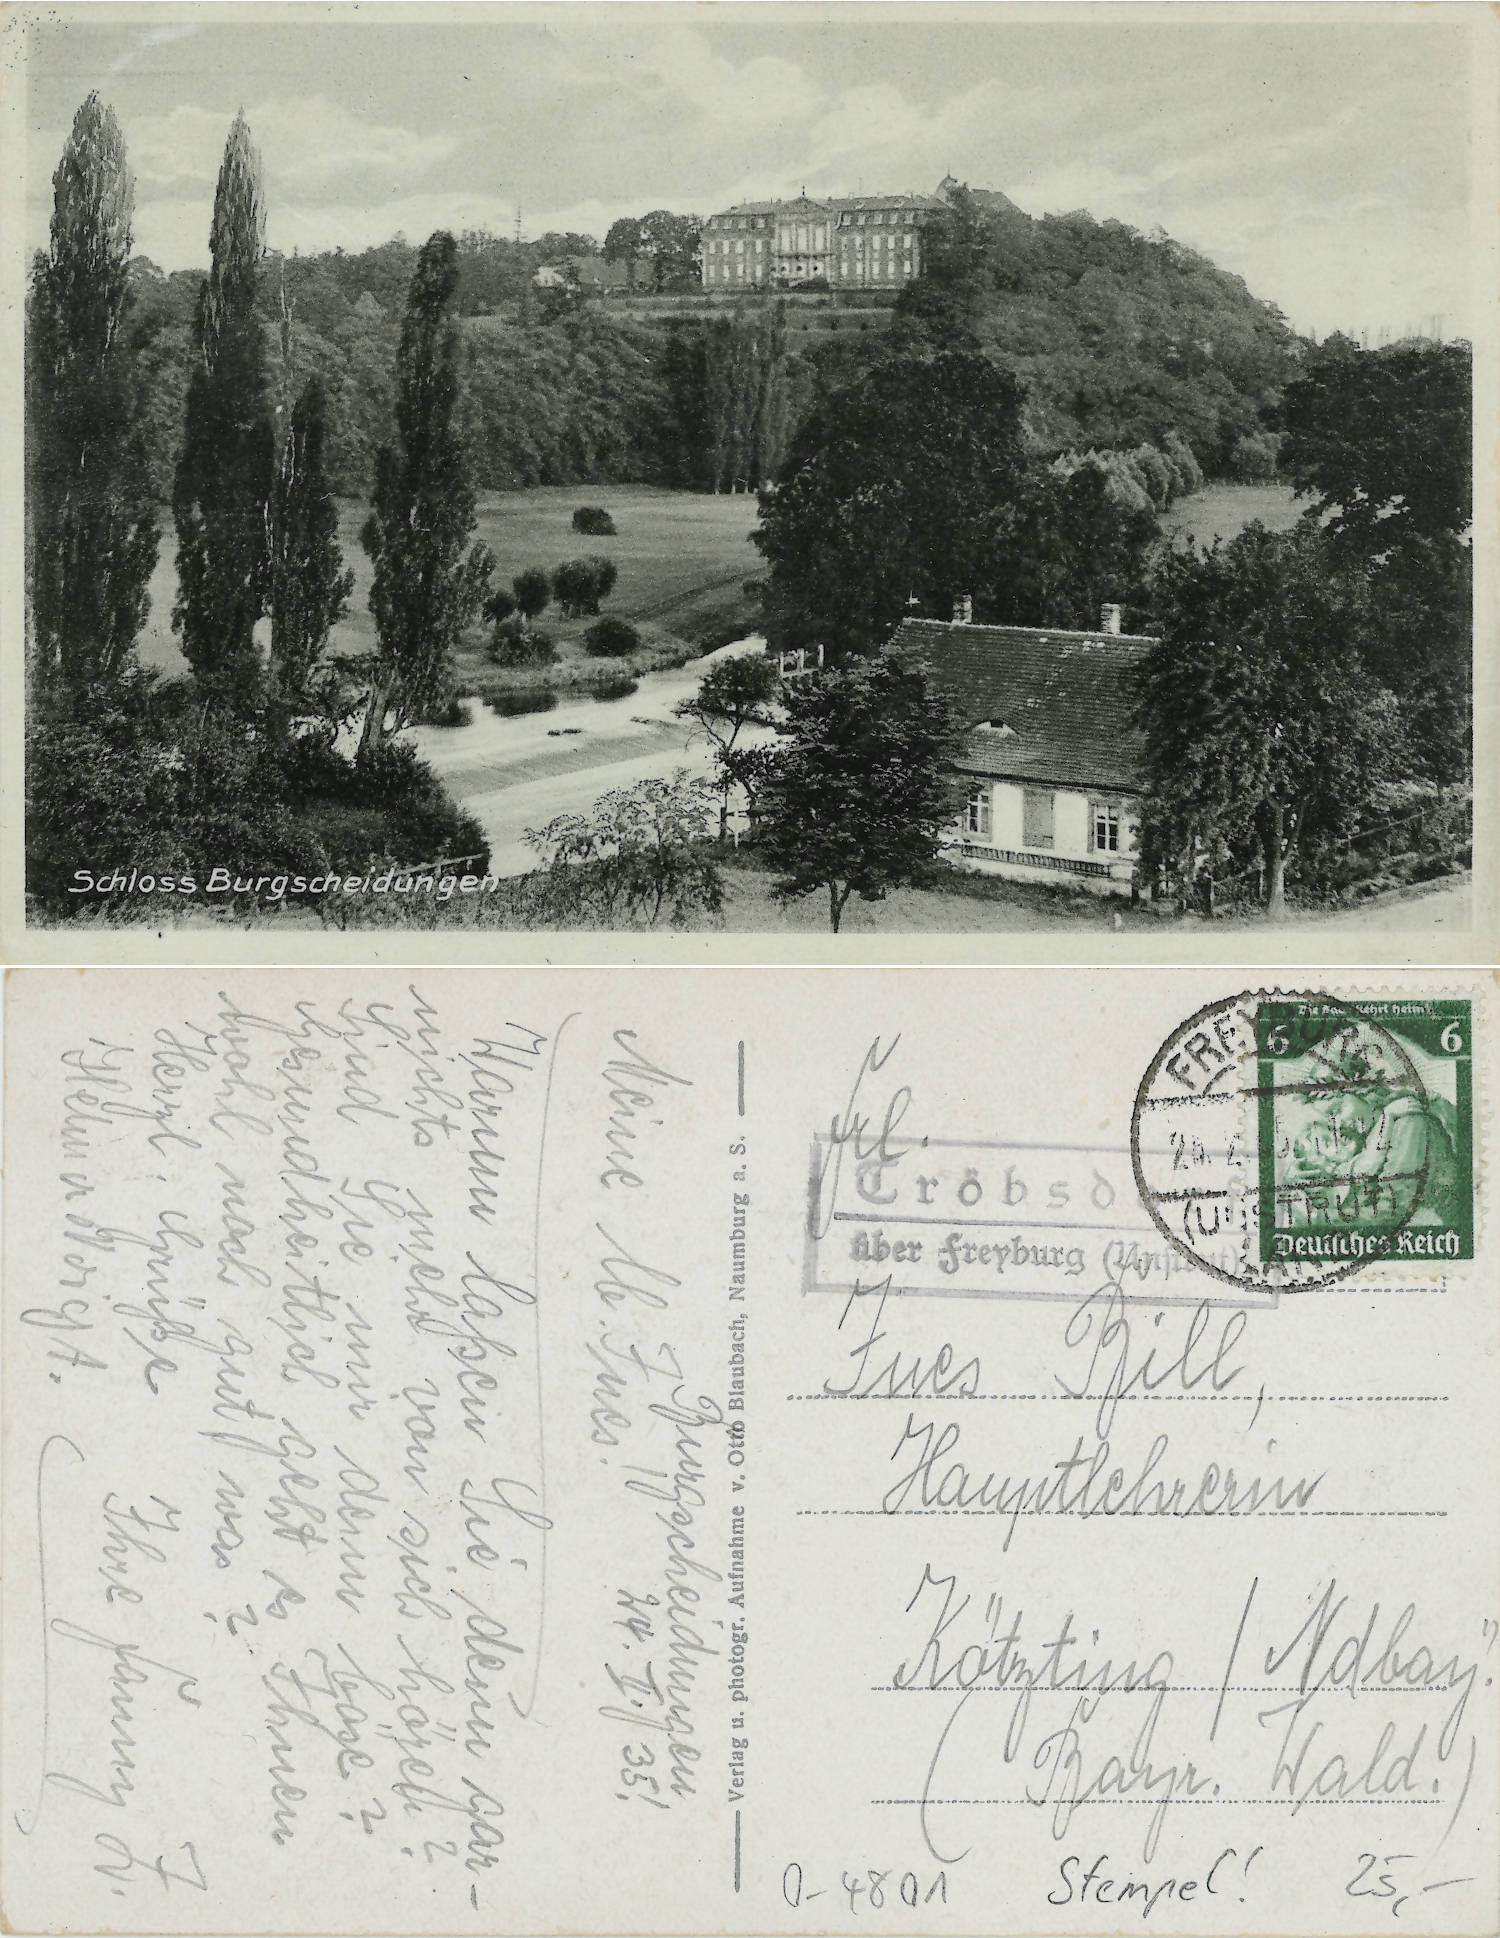 Schloss Burgscheidungen
Burgscheidungen
24. II./35!
Meine lb. Ines!
Warum laßen Sie denn gar-
nichts mehr von sich hören?
Sind Sie mir denn böse?
Gesundheitlich geht es Ihnen
wohl noch gut was?
Herzl. Grüße
Ihre Fanny
Verlag u. photogr. Aufnahme v. Otto Blaubach, Naumburg a. S.
Die Saar kehrt heim!
6 6
Deutsches Reich
FREYBURG
(UNSTRUT)
LAND
Tröbsdorf
über Freyburg (Unstrut)
Frl.
Ines Bill,
Hauptlehrerin
Kötzting / Ndbay.
(Bayr. Wald.)
O-4801 Stempel! 25,-